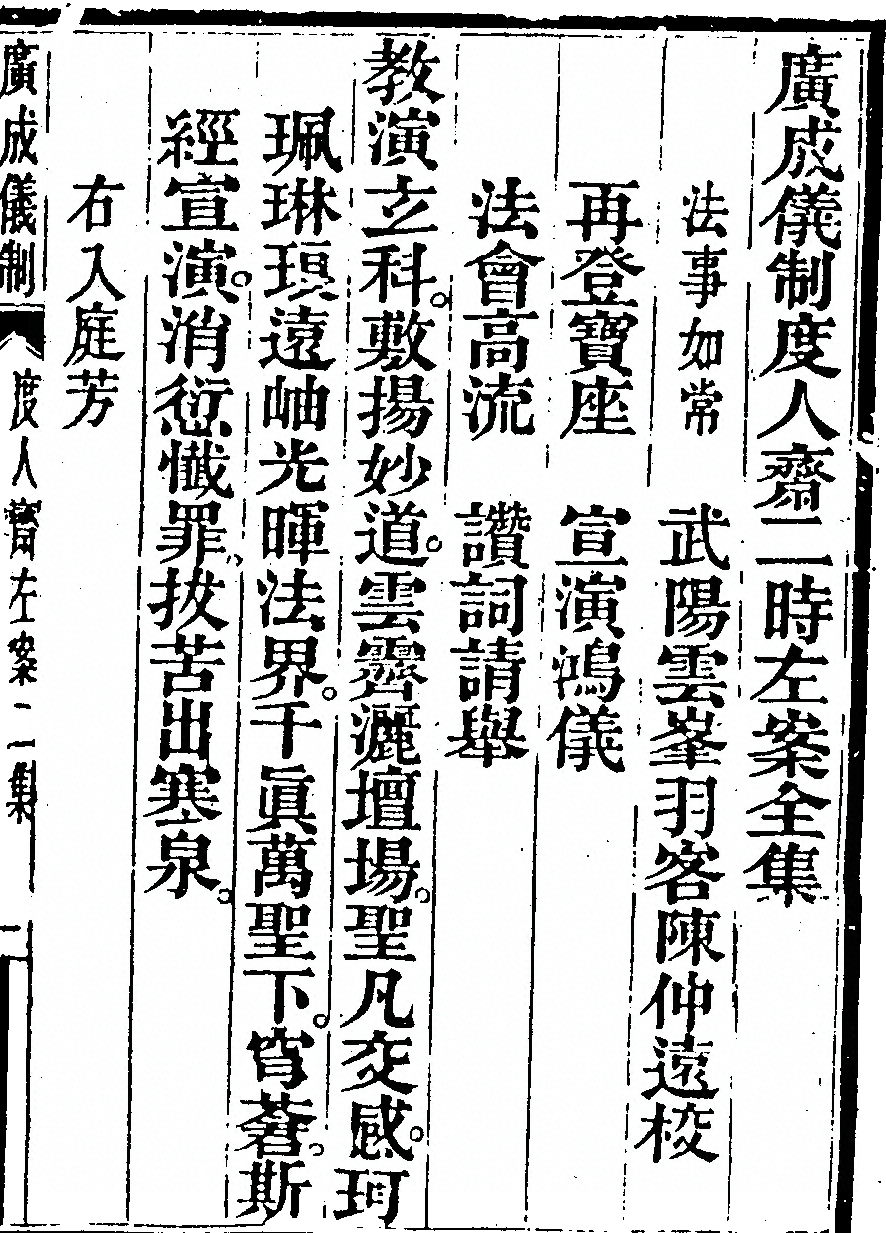 廣成儀制度人齋二時左案全集
法事如常　武陽雲峯羽客陳仲遠校
再登寶座　宣演鴻儀
法會高流　讚詞請舉
教演立科。敷揚妙道。雲霽灑壇場。聖凡交感。珂
珮琳琅遠岫光暉法界。千眞萬聖下。穹蒼。斯
經宣演。消愆懺罪。拔苦出寒泉。
右入庭芳
廣成儀制　度人齋左案二集　二